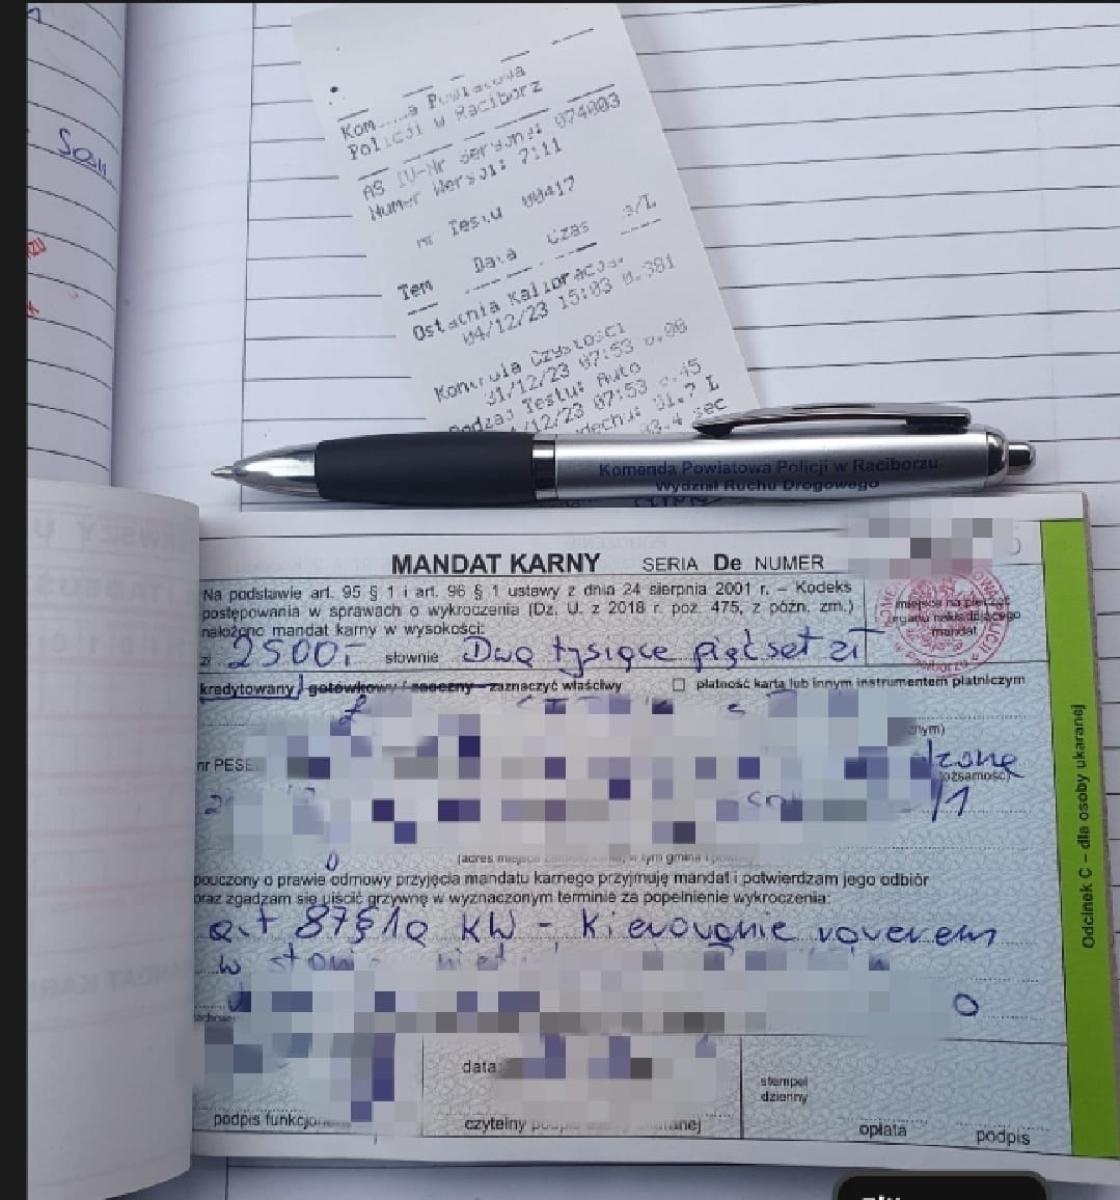 San
Komenda Powiatowa
Policji w Raciborz
AS IV-Nr seryjny: 074003
Numer Wersji: 7111
nr Testu 00417
Tem Data Czas g/L
Ostatnia Kalibracja.
04/12/23 15:03 0.381
Kontrola Czystości
31/12/23 07:53 0.00
Rodzaj Testu: Auto
/12/23 07:53 0.45
dechu: 01.7 L
03.4 sec
Komenda Powiatowa Policji w Raciborzu
Wydział Ruchu Drogowego
MANDAT KARNY SERIA De NUMER
Na podstawie art. 95 § 1 i art. 96 § 1 ustawy z dnia 24 sierpnia 2001 r. – Kodeks
postępowania w sprawach o wykroczenia (Dz. U. z 2018 r. poz. 475, z późn. zm.)
nałożono mandat karny w wysokości:
miejsce na pieczęć
organu nakładającego
mandat
zł 2500,- słownie Dwa tysiące pięćset zł
kredytowany / gotówkowy / zaoczny – zaznaczyć właściwy
☐ płatność kartą lub innym instrumentem płatniczym
nr PESEL
/1
pouczony o prawie odmowy przyjęcia mandatu karnego przyjmuję mandat i potwierdzam jego odbiór
oraz zgadzam się uiścić grzywnę w wyznaczonym terminie za popełnienie wykroczenia:
art 87§1a KW - Kierowanie rowerem
w stanie
data:
stempel
dzienny
podpis funkcjo
czytelny
opłata
podpis
Odcinek C – dla osoby ukaranej